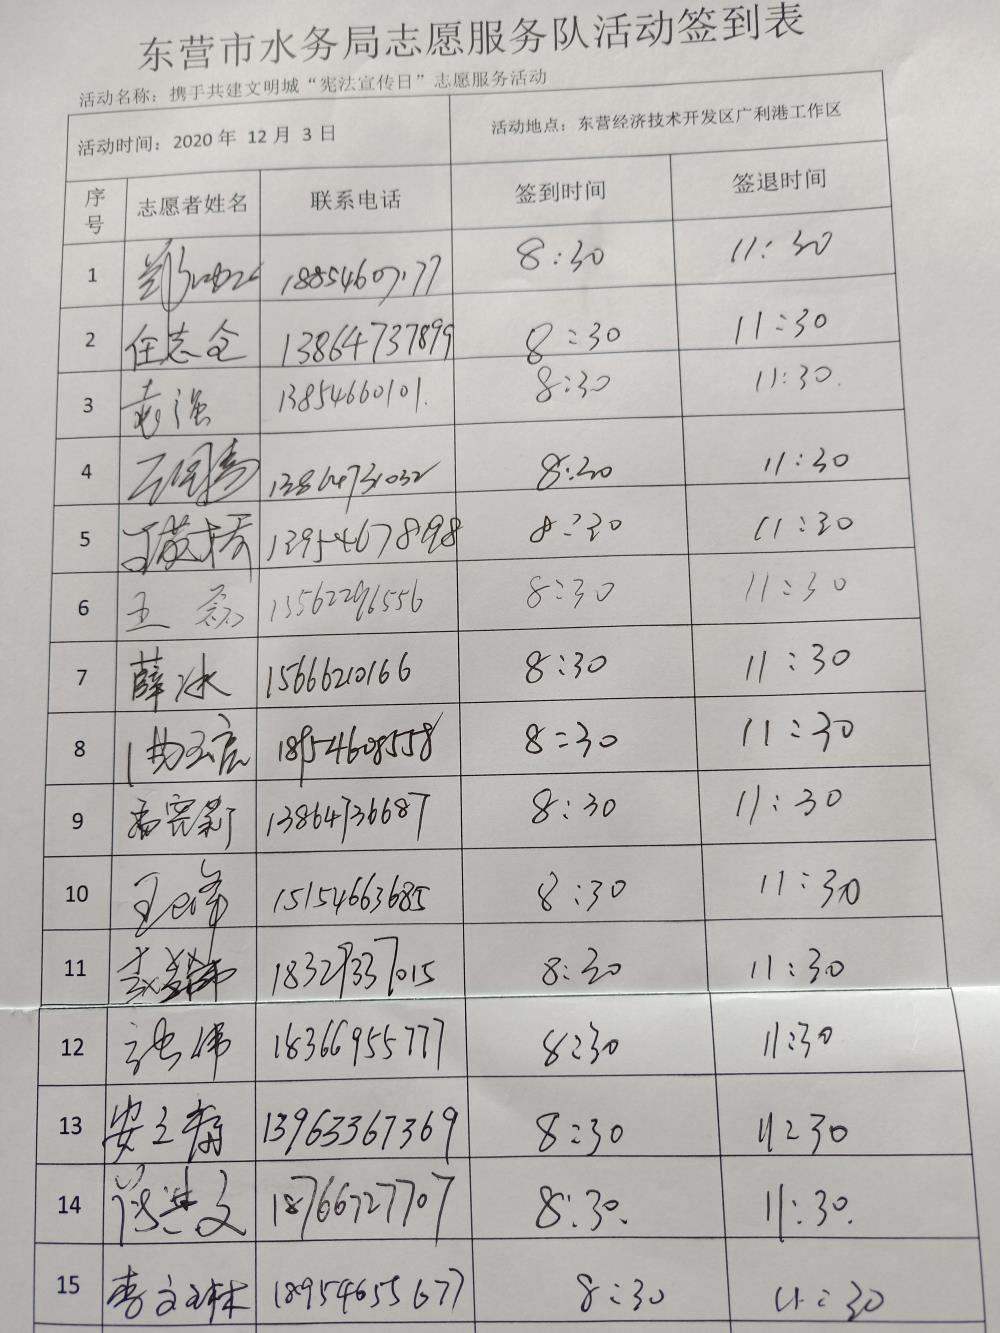 东营市水务局志愿服务队活动签到表
活动名称：携手共建文明城“宪法宣传日”志愿服务活动
活动时间：2020 年 12 月 3 日 活动地点：东营经济技术开发区广利港工作区
序号 志愿者姓名 联系电话 签到时间 签退时间
1 8:30 11:30
2 任志全 13864737899 8:30 11:30
3 袁强 13854660101. 8:30 11:30.
4 13864731032 8:30 11:30
5 13954678898 8:30 11:30
6 王磊 13562296556 8:30 11:30
7 薛冰 15666210166 8:30 11:30
8 18954608558 8:30 11:30
9 13864736687 8:30 11:30
10 15154663685 8:30 11:30
11 18327337015 8:30 11:30
12 张伟 18366955777 8:30 11:30
13 安立群 13963367369 8:30 11:30
14 18766727707 8:30. 11:30.
15 李文琳 18954655677 8:30 11:30